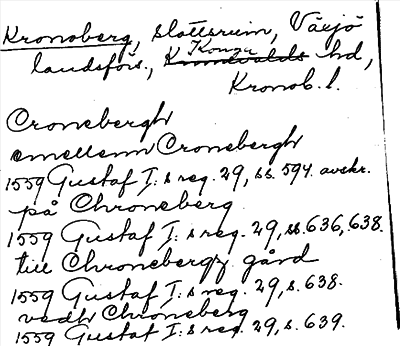 Kronoberg, slottsruin, Växjö
landsförs., Konga hd,
Kronob. l.
Cronebergh
emellenn Cronebergh
1559 Gustaf I:s reg. 29, ss. 594. avskr.
på Chroneberg
1559 Gustaf I:s reg. 29, ss. 636, 638.
till Chronebergz gård
1559 Gustaf I:s reg. 29, s. 638.
vedh Chroneberg
1559 Gustaf I:s reg. 29, s. 639.